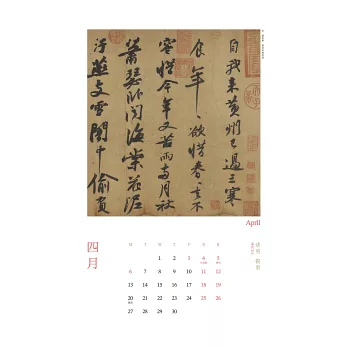 自我来黃州已過三寒
食年〻欲惜春〻去不
容惜今年又苦雨兩月秋
蕭瑟卧聞海棠花泥
汙燕支雪闇中偷負
April
四月
清明 穀雨
1 2 3 4 5
6 7 8 9 10 11 12
13 14 15 16 17 18 19
20 21 22 23 24 25 26
27 28 29 30